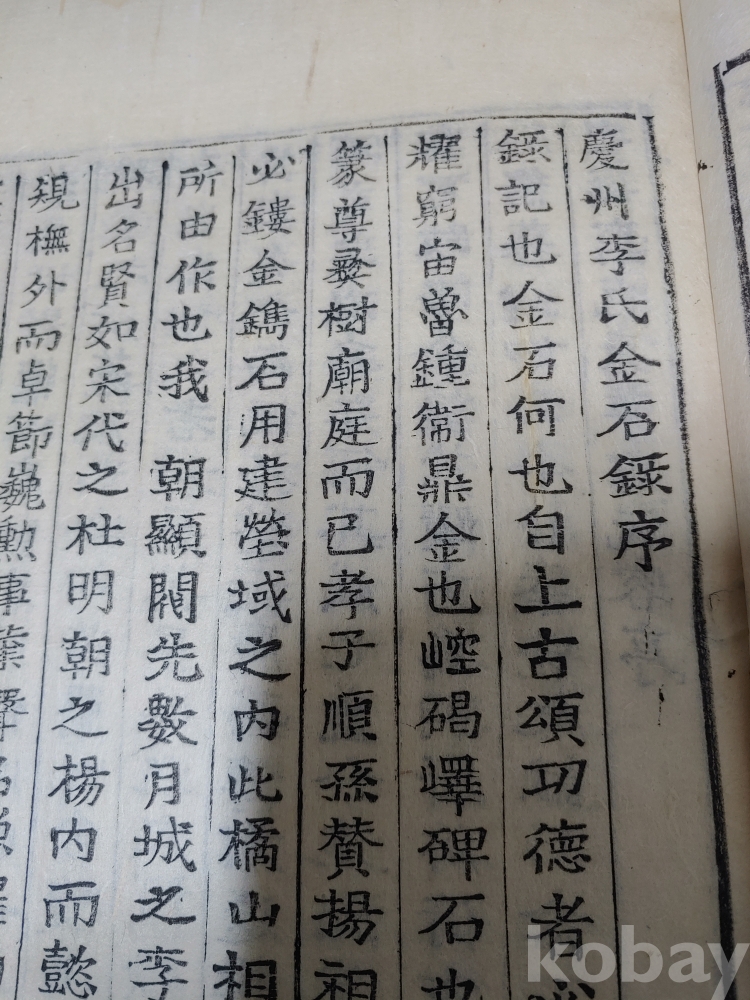 慶州李氏金石錄序
錄記也金石何也自上古頌功德者必
耀窮宙魯鍾衞鼎金也崆碣嶧碑石也
篆尊彛樹廟庭而已孝子順孫贊揚祖
必鏤金鐫石用建塋域之內此橘山相
所由作也我 朝顯閥先數月城之李
出名賢如宋代之杜明朝之楊內而懿
規橅外而卓節巍勳事業聲名
kobay